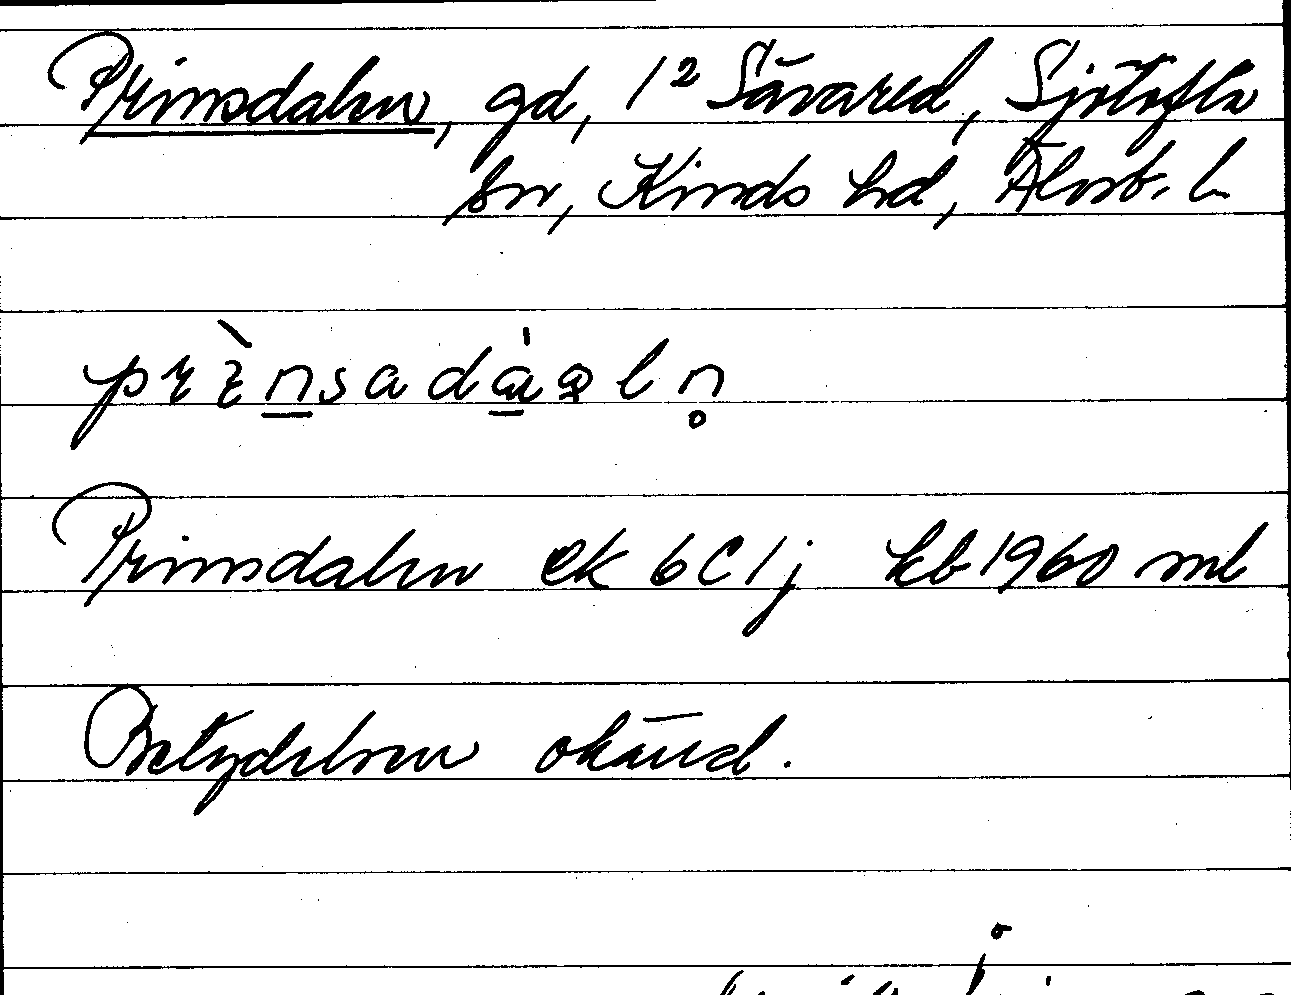 Prinsdalen, gd, 1² Sävared, Sjötofta
sn, Kinds hd, Älvsb. l
Prinsdalen ek 6C1j kb 1960 ml
Betydelsen okänd.